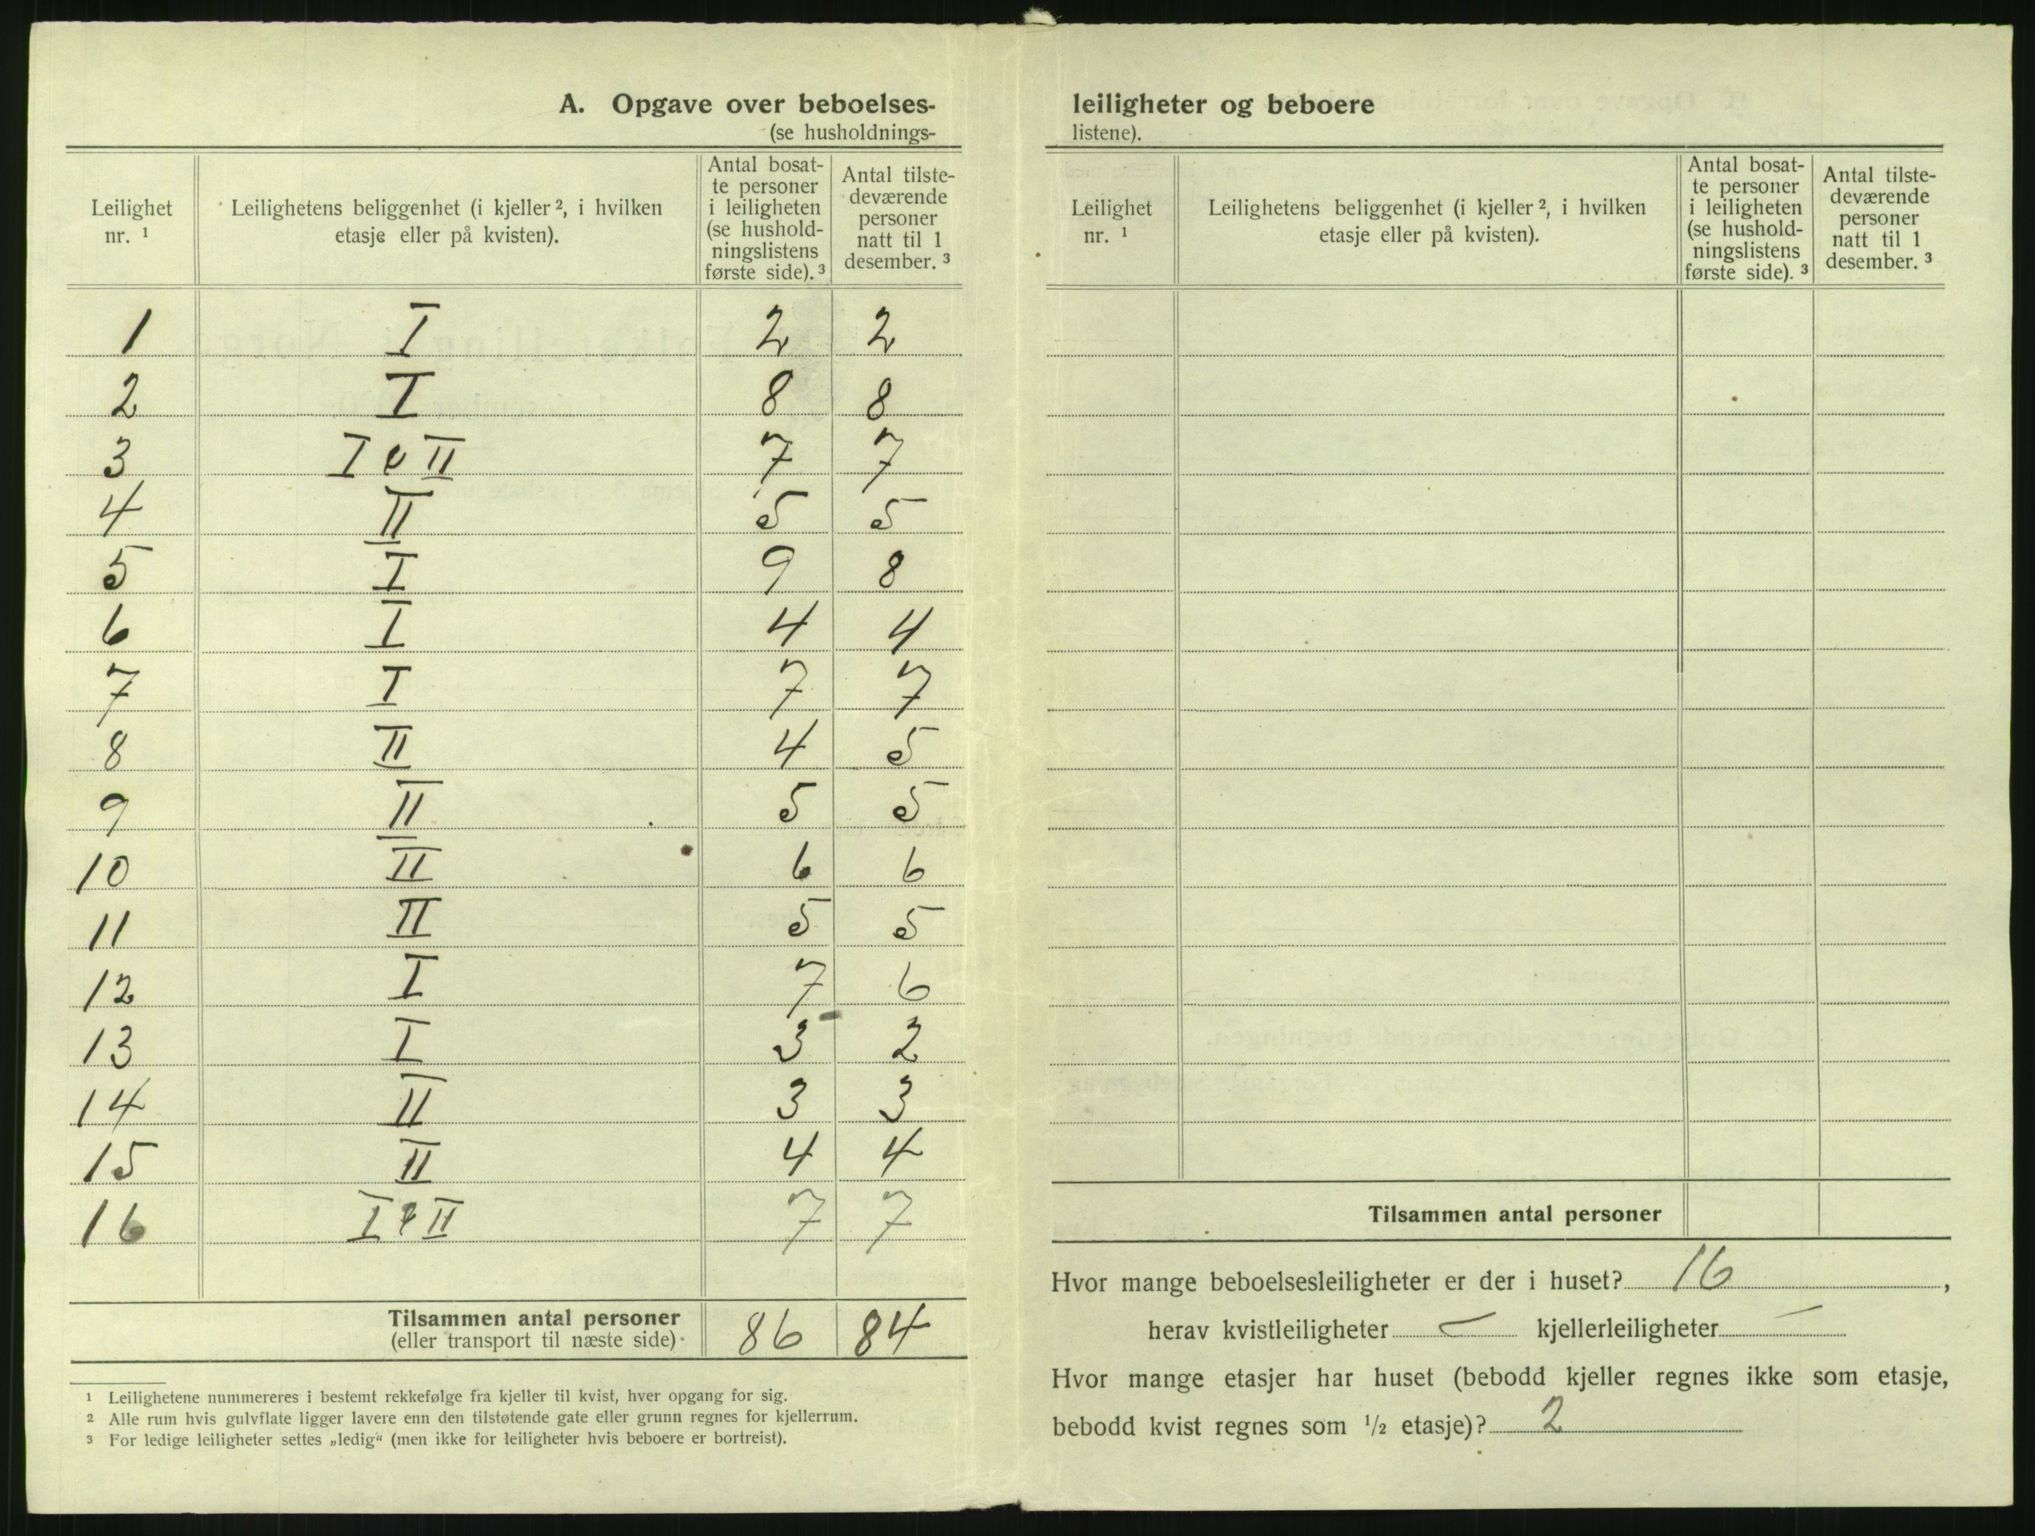 A. Opgave over beboelses-
(se husholdnings-
Leilighet nr. ¹ | Leilighetens beliggenhet (i kjeller ², i hvilken etasje eller på kvisten). | Antal bosat-te personer i leiligheten (se hushold-ningslistens første side). ³ | Antal tilste-deværende personer natt til 1 desember. ³
1 I 2 2
2 I 8 8
3 I & II 7 7
4 II 5 5
5 I 9 8
6 I 4 4
7 I 7 7
8 II 4 5
9 II 5 5
10 II 6 6
11 II 5 5
12 I 7 6
13 I 3 2
14 II 3 3
15 II 4 4
16 I & II 7 7
Tilsammen antal personer 86 84
(eller transport til næste side)
¹ Leilighetene nummereres i bestemt rekkefølge fra kjeller til kvist, hver opgang for sig.
² Alle rum hvis gulvflate ligger lavere enn den tilstøtende gate eller grunn regnes for kjellerrum.
³ For ledige leiligheter settes „ledig“ (men ikke for leiligheter hvis beboere er bortreist).
leiligheter og beboere
listene).
Leilighet nr. ¹ | Leilighetens beliggenhet (i kjeller ², i hvilken etasje eller på kvisten). | Antal bosat-te personer i leiligheten (se hushold-ningslistens første side). ³ | Antal tilste-deværende personer natt til 1 desember. ³
Tilsammen antal personer
Hvor mange beboelsesleiligheter er der i huset? 16,
herav kvistleiligheter — kjellerleiligheter —
Hvor mange etasjer har huset (bebodd kjeller regnes ikke som etasje,
bebodd kvist regnes som ½ etasje)? 2